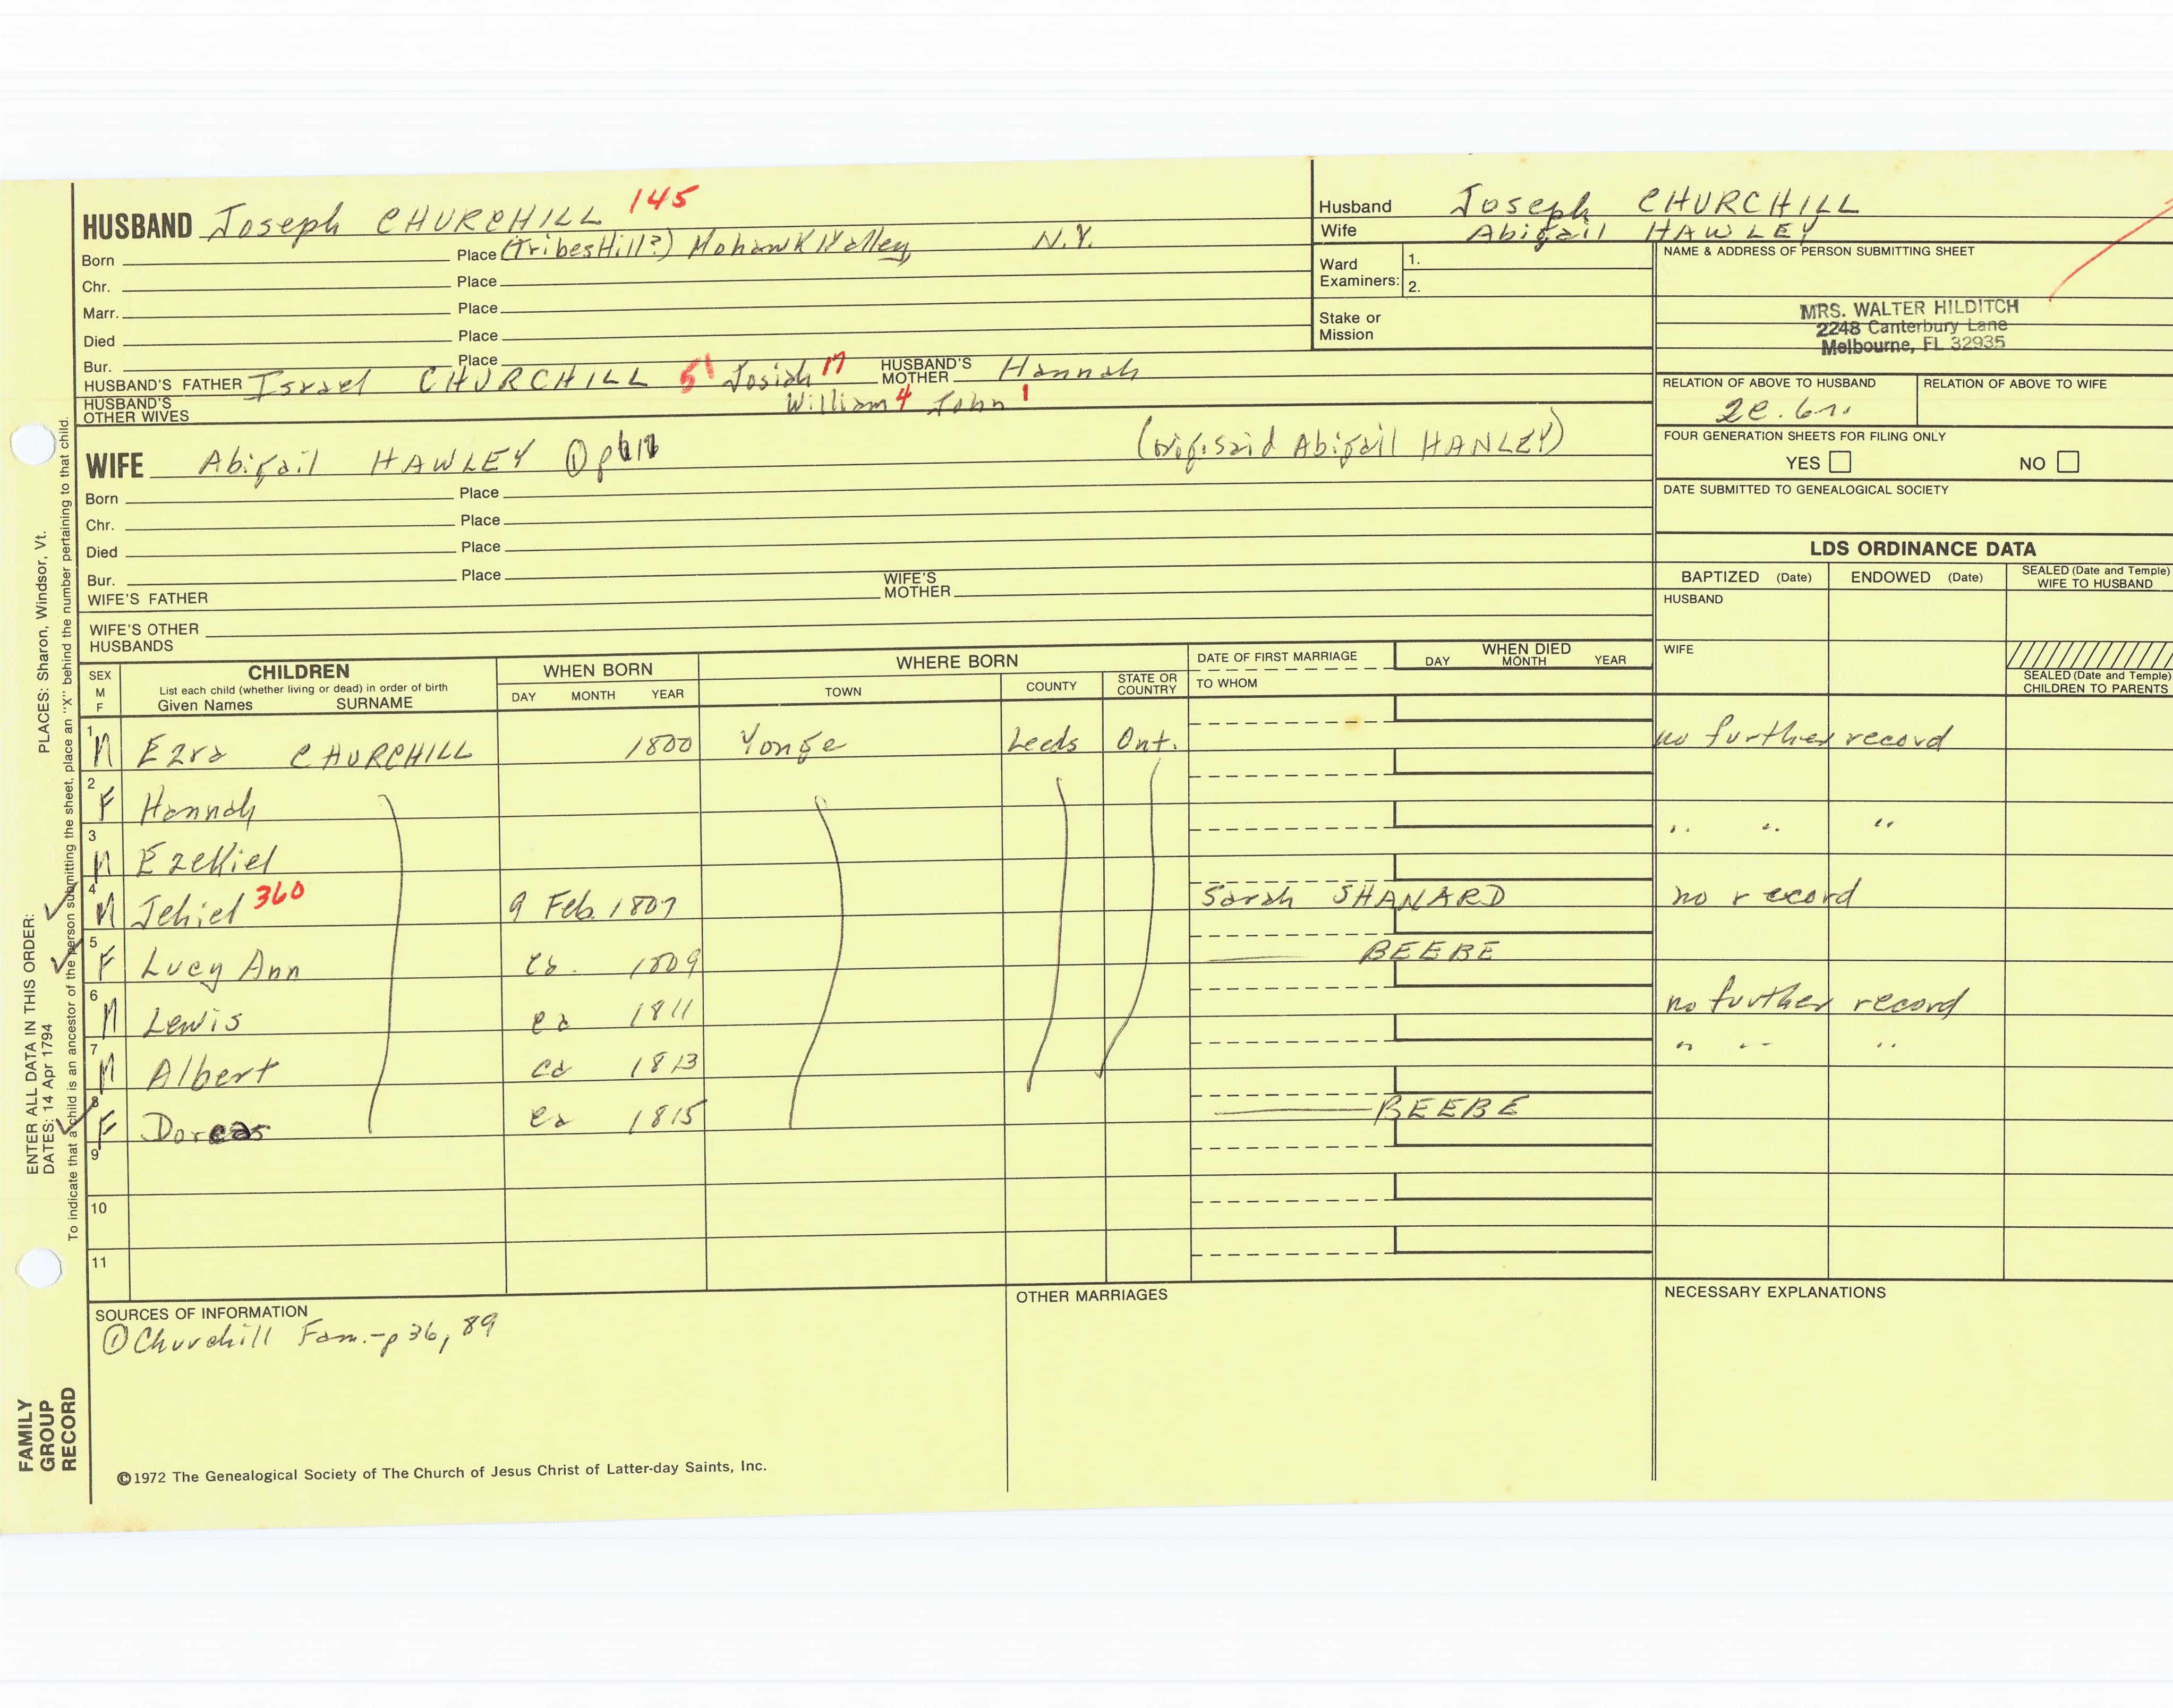 HUSBAND Joseph CHURCHILL 145
Born Place (Tribes Hill?) Mohawk Valley, N.Y.
Chr. Place
Marr. Place
Died Place
Bur. Place
HUSBAND'S FATHER Israel CHURCHILL 51 Josiah 17 HUSBAND'S MOTHER Hannah
HUSBAND'S OTHER WIVES William 4 John 1
WIFE Abigail HAWLEY (orig. said Abigail HANLEY)
Born Place
Chr. Place
Died Place
Bur. Place
WIFE'S FATHER WIFE'S MOTHER
WIFE'S OTHER HUSBANDS
Husband Joseph CHURCHILL
Wife Abigail HAWLEY
Ward Examiners: 1. 2.
Stake or Mission
NAME & ADDRESS OF PERSON SUBMITTING SHEET
MRS. WALTER HILDITCH
2248 Canterbury Lane
Melbourne, FL 32935
RELATION OF ABOVE TO HUSBAND RELATION OF ABOVE TO WIFE
FOUR GENERATION SHEETS FOR FILING ONLY
YES NO
DATE SUBMITTED TO GENEALOGICAL SOCIETY
LDS ORDINANCE DATA
BAPTIZED (Date) ENDOWED (Date) SEALED (Date and Temple) WIFE TO HUSBAND
HUSBAND
WIFE
SEALED (Date and Temple) CHILDREN TO PARENTS
SEX M F CHILDREN List each child (whether living or dead) in order of birth Given Names SURNAME
WHEN BORN DAY MONTH YEAR
WHERE BORN TOWN COUNTY STATE OR COUNTRY
DATE OF FIRST MARRIAGE TO WHOM
WHEN DIED DAY MONTH YEAR
1 M Ezra CHURCHILL 1800 Yonge Leeds Ont. no further record
2 F Hannah " " "
3 M Ezekiel
4 M Jehiel 360 9 Feb. 1807 Sarah SHANARD no record
5 F Lucy Ann ca. 1809 BEEBE
6 M Lewis ca 1811 no further record
7 M Albert ca 1813 " " "
8 F Dorcas ca 1815 BEEBE
9
10
11
SOURCES OF INFORMATION
① Churchill Fam. - p 36, 89
OTHER MARRIAGES
NECESSARY EXPLANATIONS
©1972 The Genealogical Society of The Church of Jesus Christ of Latter-day Saints, Inc.
FAMILY GROUP RECORD
ENTER ALL DATA IN THIS ORDER:
DATES: 14 Apr 1794
PLACES: Sharon, Windsor, Vt.
To indicate that a child is an ancestor of the person submitting the sheet, place an "X" behind the number pertaining to that child.